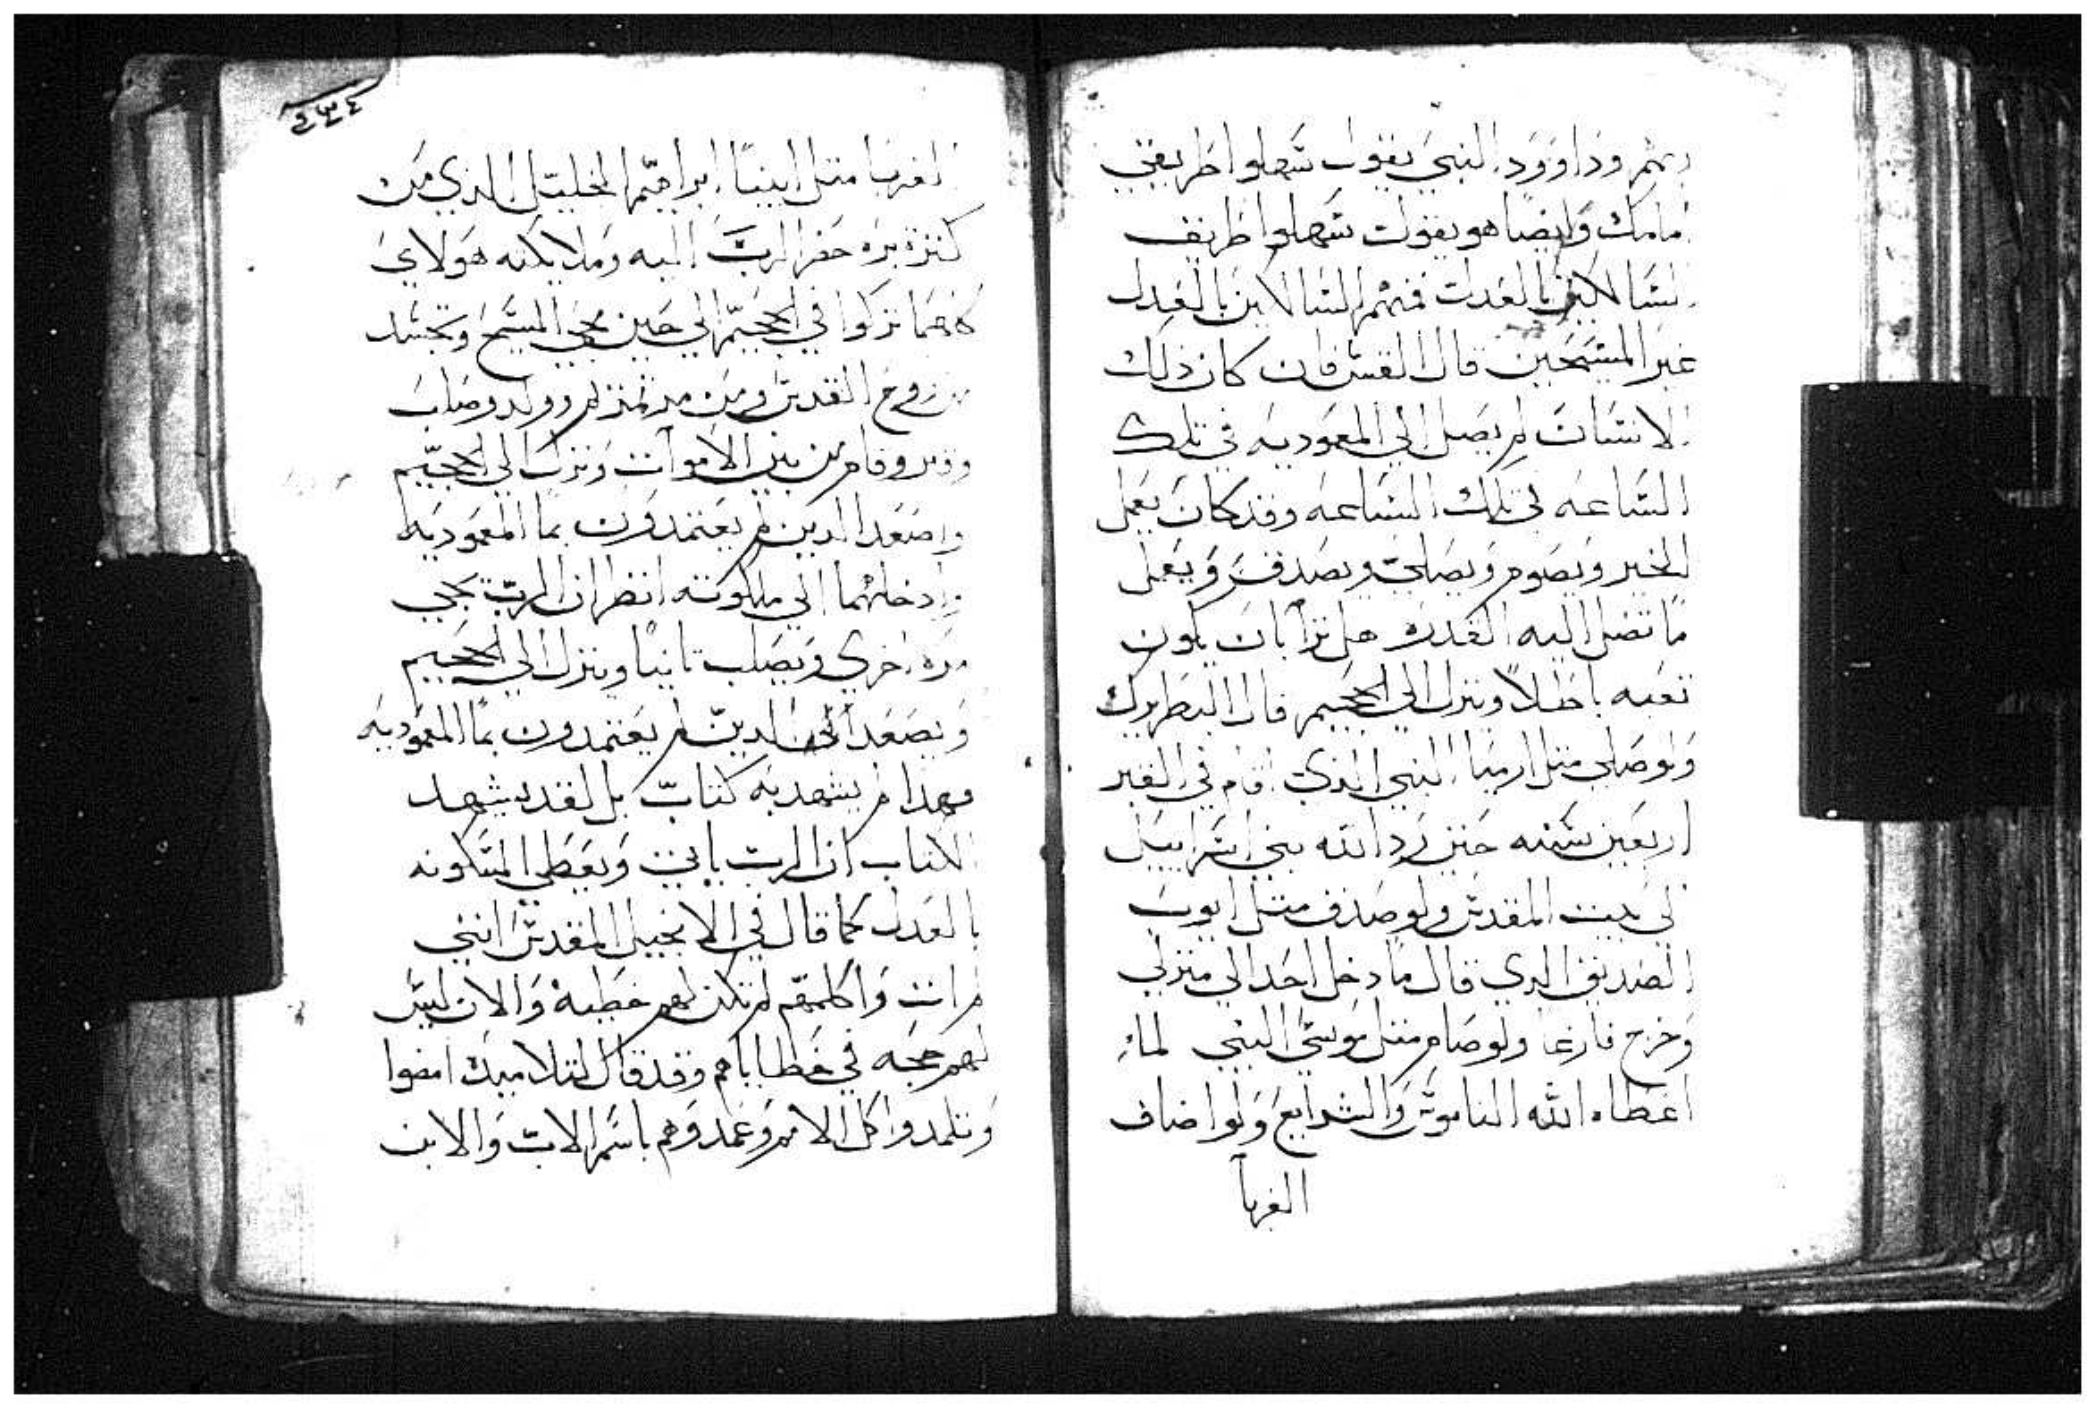 ربهم وداوود النبي يقول سهلوا طريقي
امامك وايضا هو يقول سهلوا طريق
السالكين بالعدل فمنهم السالكين بالعدل
غير المسيحين قال القس فان كان ذلك
الانسان لم يصل الي المعموديه في تلك
الساعه في تلك الساعه وقد كان يعمل
الخير ويصوم ويصلي ويصدق ويعمل
ما تصل اليه القدره هل ترا بان يكون
تعبه باطلاً وينزل الي الجحيم قال البطريرك
ولو صلي متل ارميا النبي الذي اقام في القبر
اربعين سنه حتي رد الله بني اسراييل
الي بيت المقدس ولو صدق متل ايوب
الصديق الدي قال ما دخل احد الي منزلي
وخرج فارغا ولو صام متل موسي النبي لماء
اعطاه الله الناموس والشرايع ولو اضاف
الغربآ
٢٣٤
الغربا متل ابينا ابراهيم الخليل الذي من
كترة بره حضر الرب اليه وملايكته هولاي
كلهما نزلوا في الجحيم الي حين مجي المسيح وتجسد
من روح القدس ومن مرتمريم وولد وصلب
وقبر وقام من بين الاموات ونزل الي الجحيم
واصعد الدين لم يعتمدون بما المعموديه
وادخلهما الي ملكوته انظر ان الرب يجي
مره اخري ويصلب تانيا وينزل الي الجحيم
ويصعد الدين لم يعتمدون بما المعموديه
فهدا لم يشهد به كتاب بل لقد يشهد
الكتاب ان الرب ياتي ويعطي المسكونه
بالعدل كما قال في الانجيل المقدس انني
لم انت واكلمهم لم تكن لهم خطيه والان ليس
لهم حجه في خطاياهم وقد قال لتلاميده امضوا
وتلمدوا كل الامم وعمدوهم باسم الاب والابن